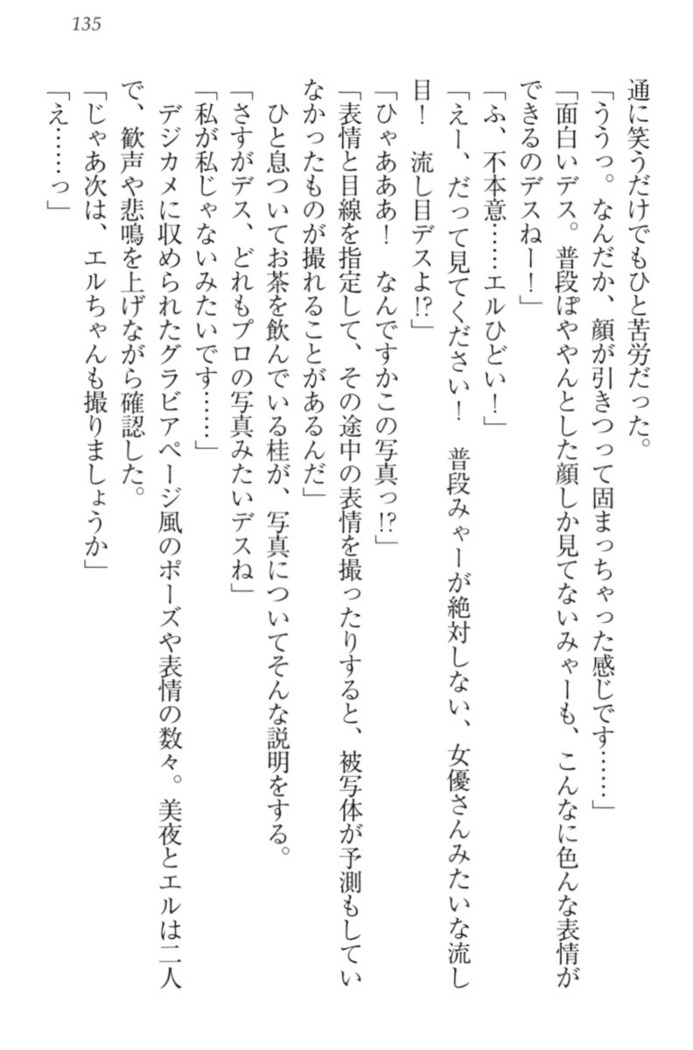 135
通に笑うだけでもひと苦労だった。
「ううっ。なんだか、顔が引きつって固まっちゃった感じです……」
「面白いデス。普段ぽややんとした顔しか見てないみゃーも、こんなに色んな表情が
できるのデスねー！」
「ふ、不本意……エルひどい！」
「えー、だって見てください！　普段みゃーが絶対しない、女優さんみたいな流し
目！　流し目デスよ!?」
「ひゃあああ！　なんですかこの写真っ!?」
「表情と目線を指定して、その途中の表情を撮ったりすると、被写体が予測もしてい
なかったものが撮れることがあるんだ」
ひと息ついてお茶を飲んでいる桂が、写真についてそんな説明をする。
「さすがデス、どれもプロの写真みたいデスね」
「私が私じゃないみたいです……」
デジカメに収められたグラビアページ風のポーズや表情の数々。美夜とエルは二人
で、歓声や悲鳴を上げながら確認した。
「じゃあ次は、エルちゃんも撮りましょうか」
「え……っ」